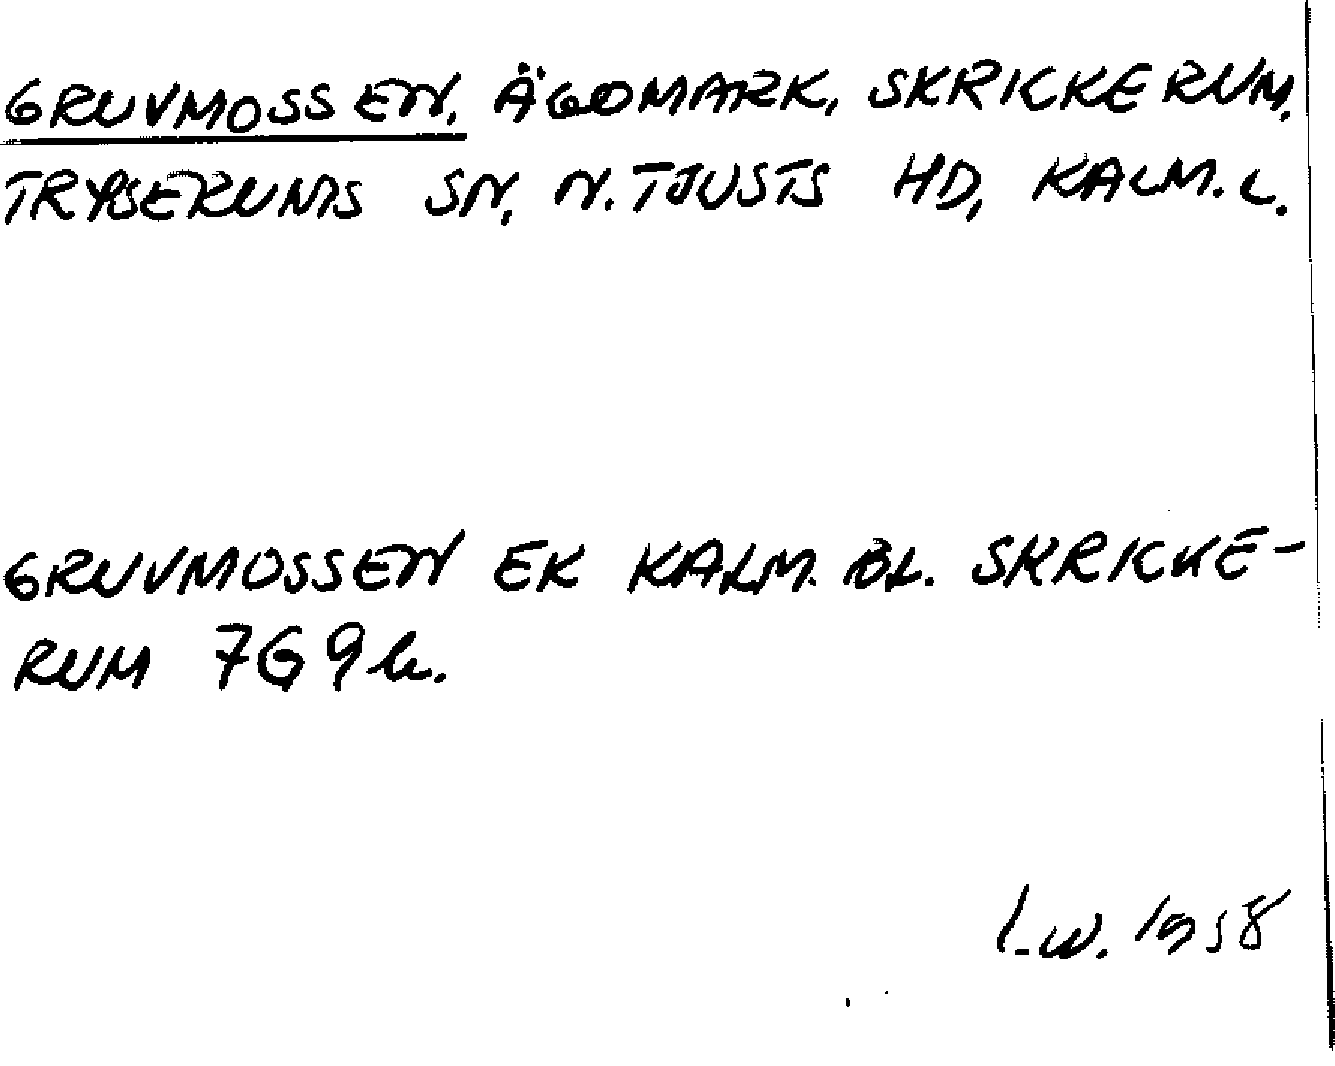 GRUVMOSSEN, ÄGOMARK, SKRICKERUM,
TRYSERUMS SN, N. TJUSTS HD, KALM. L.
GRUVMOSSEN EK KALM. BL. SKRICKE-
RUM 7G9h.
L.W. 1958